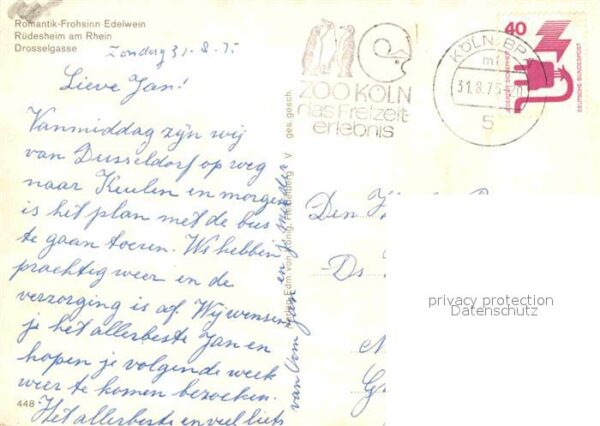 Romantik-Frohsinn Edelwein
Rüdesheim am Rhein
Drosselgasse
Zondag 31.8.75
Lieve Jan!
Vanmiddag zijn wij
van Dusseldorf op weg
naar Keulen en morgen
is het plan met de bus
te gaan toeren. We hebben
prachtig weer en de
verzorging is af. Wij wensen
je het allerbeste Jan en
hopen je volgende week
weer te komen bezoeken.
Het allerbeste en veel liefs
van Oom en
448
ges. gesch.
ZOO KÖLN
das Freizeit-
erlebnis
KÖLN BPA
mf
31.8.75-20
5
40
DEUTSCHE BUNDESPOST
Den
Ds
privacy protection
Datenschutz